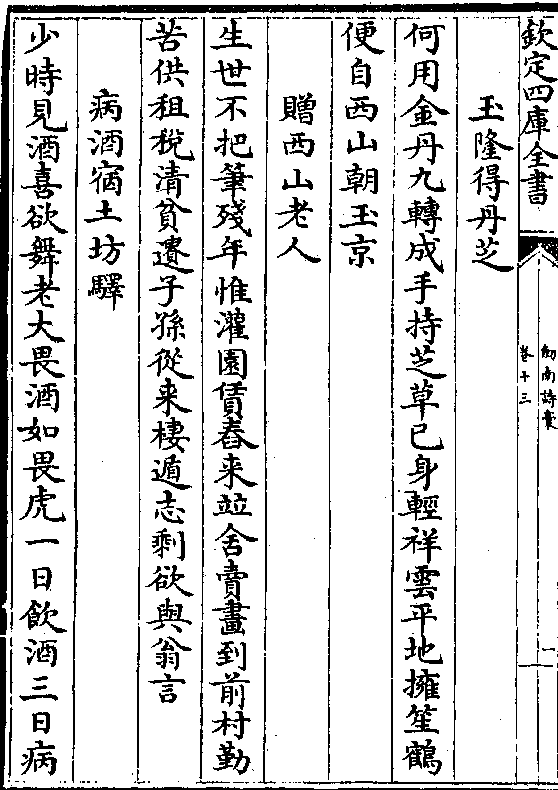 欽定四庫全書
劒南詩稾
卷十三
一
玉隆得丹芝
何用金丹九轉成手持芝草已身輕祥雲平地擁笙鶴
便自西山朝玉京
贈西山老人
生世不把筆殘年惟灌園賃舂来並舍賣畫到前村勤
苦供租稅清貧遺子孫從来棲遁志剩欲與翁言
病酒宿土坊驛
少時見酒喜欲舞老大畏酒如畏虎一日飲酒三日病